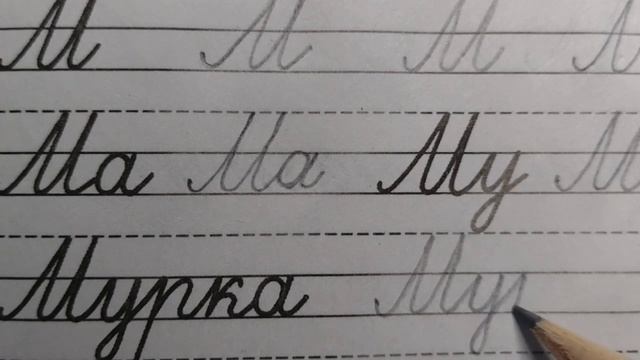 М М М М
Ма Ма Му М
Мурка Мур